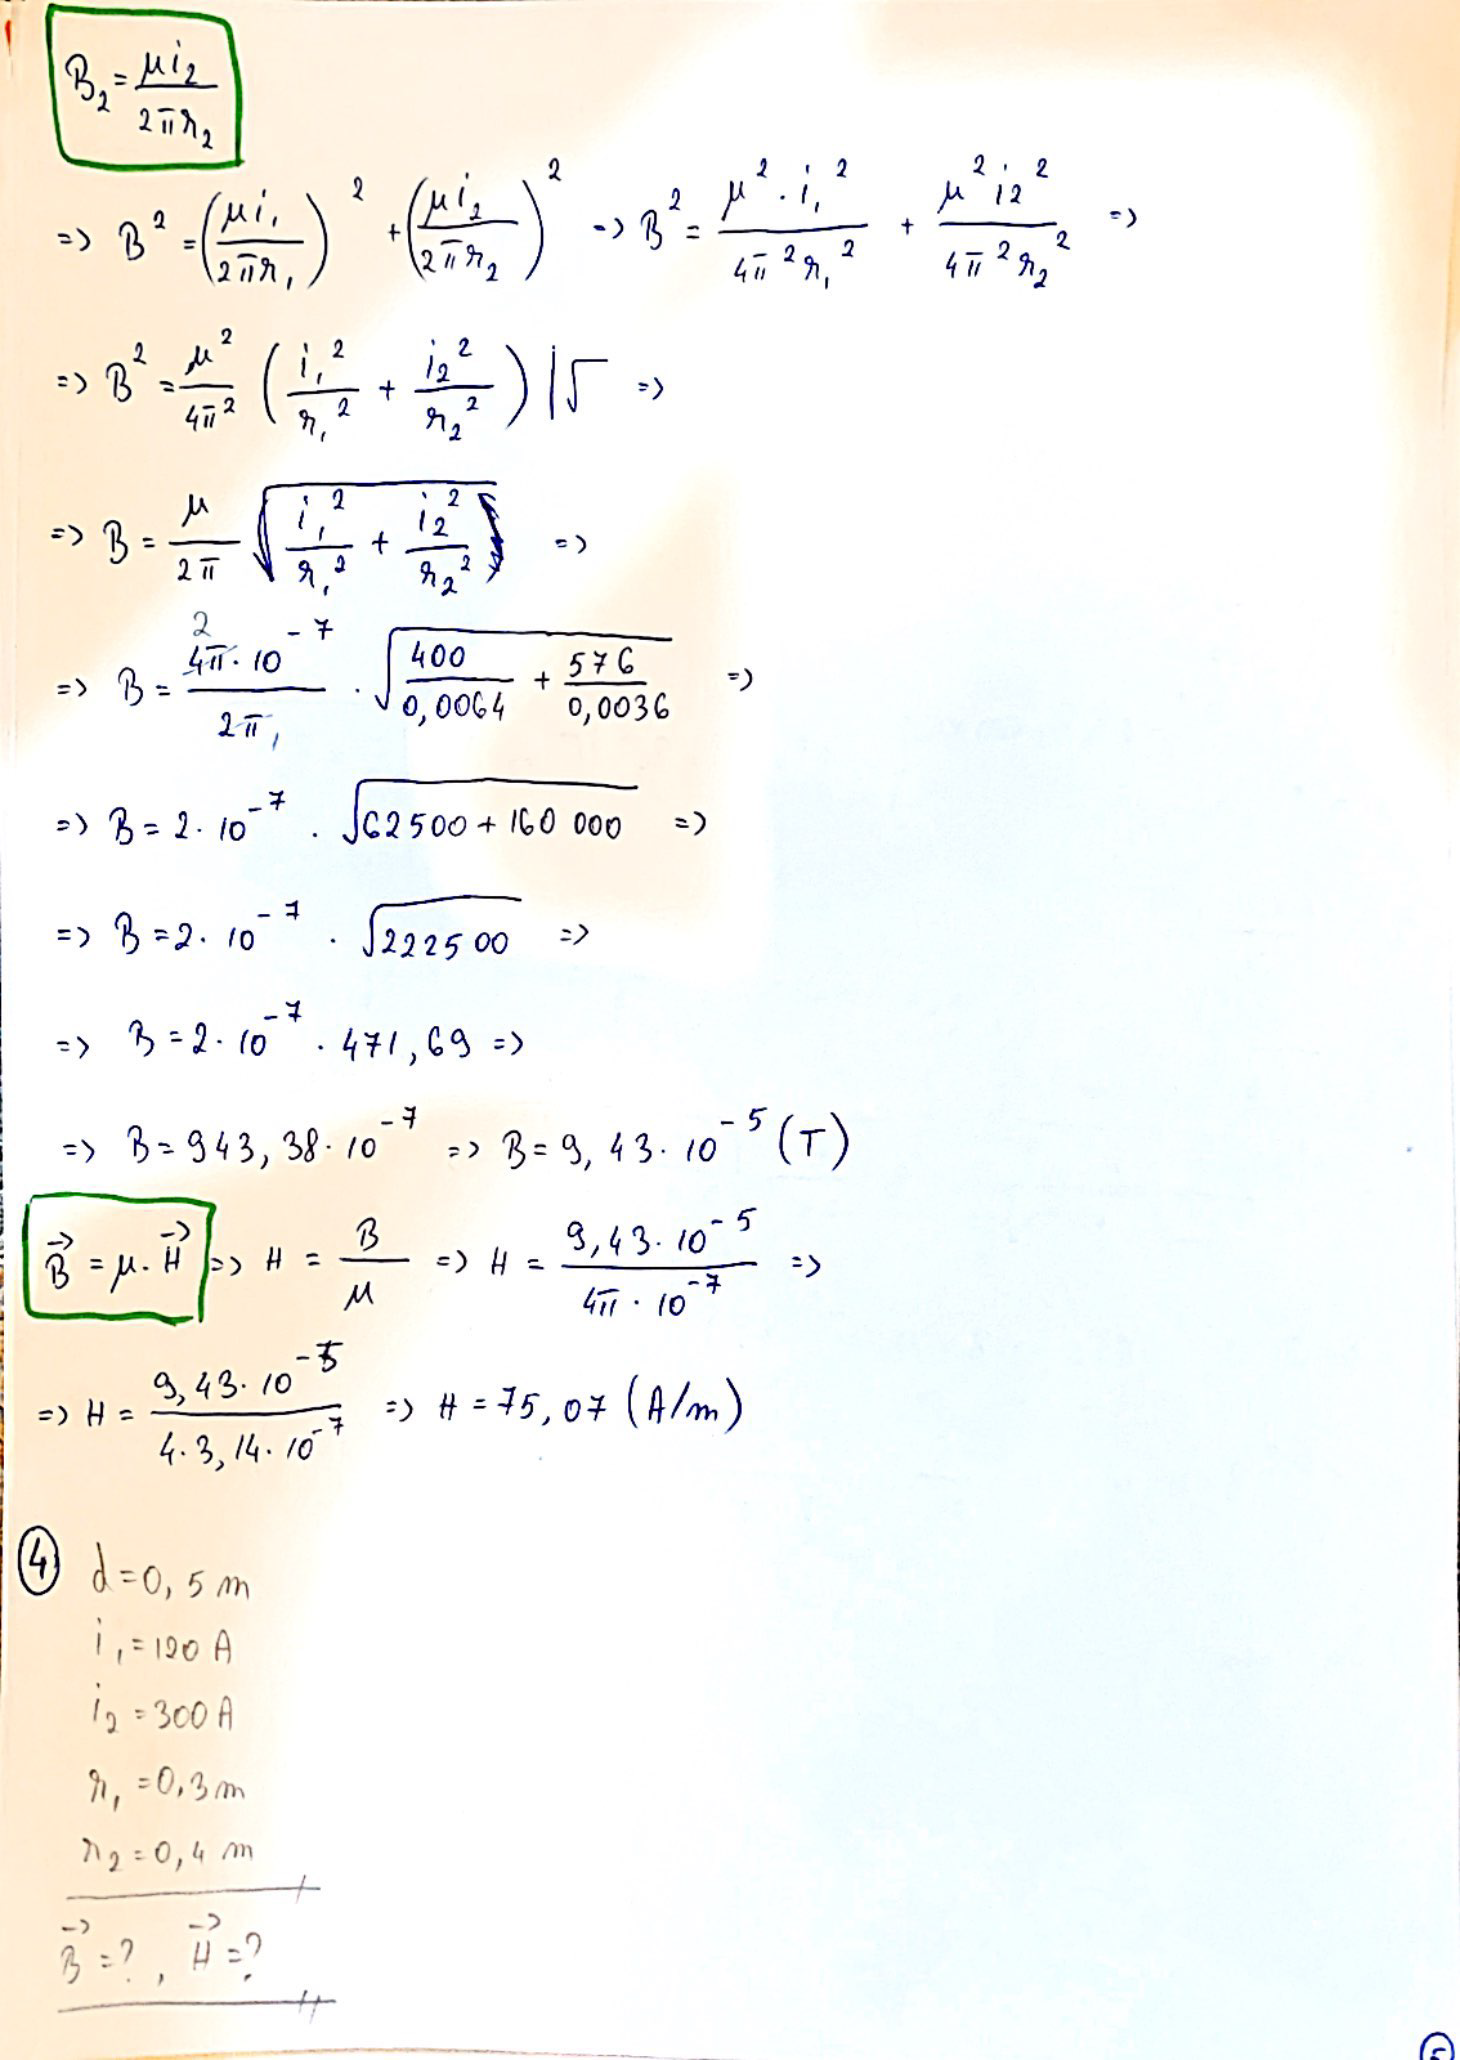 B₂ = μi₂ / 2πr₂
=> B² = (μi₁ / 2πr₁)² + (μi₂ / 2πr₂)² => B² = μ²·i₁² / 4π²r₁² + μ²i₂² / 4π²r₂² =>
=> B² = μ² / 4π² (i₁² / r₁² + i₂² / r₂²) |√ =>
=> B = μ / 2π √(i₁² / r₁² + i₂² / r₂²) =>
=> B = 4π·10⁻⁷ / 2π · √(400 / 0,0064 + 576 / 0,0036) =>
=> B = 2·10⁻⁷ · √(62500 + 160 000) =>
=> B = 2·10⁻⁷ · √222500 =>
=> B = 2·10⁻⁷ · 471,69 =>
=> B = 943,38·10⁻⁷ => B = 9,43·10⁻⁵ (T)
B⃗ = μ·H⃗ => H = B / μ => H = 9,43·10⁻⁵ / 4π·10⁻⁷ =>
=> H = 9,43·10⁻⁵ / 4·3,14·10⁻⁷ => H = 75,07 (A/m)
④ d = 0,5 m
i₁ = 120 A
i₂ = 300 A
r₁ = 0,3 m
r₂ = 0,4 m
B⃗ = ?, H⃗ = ?